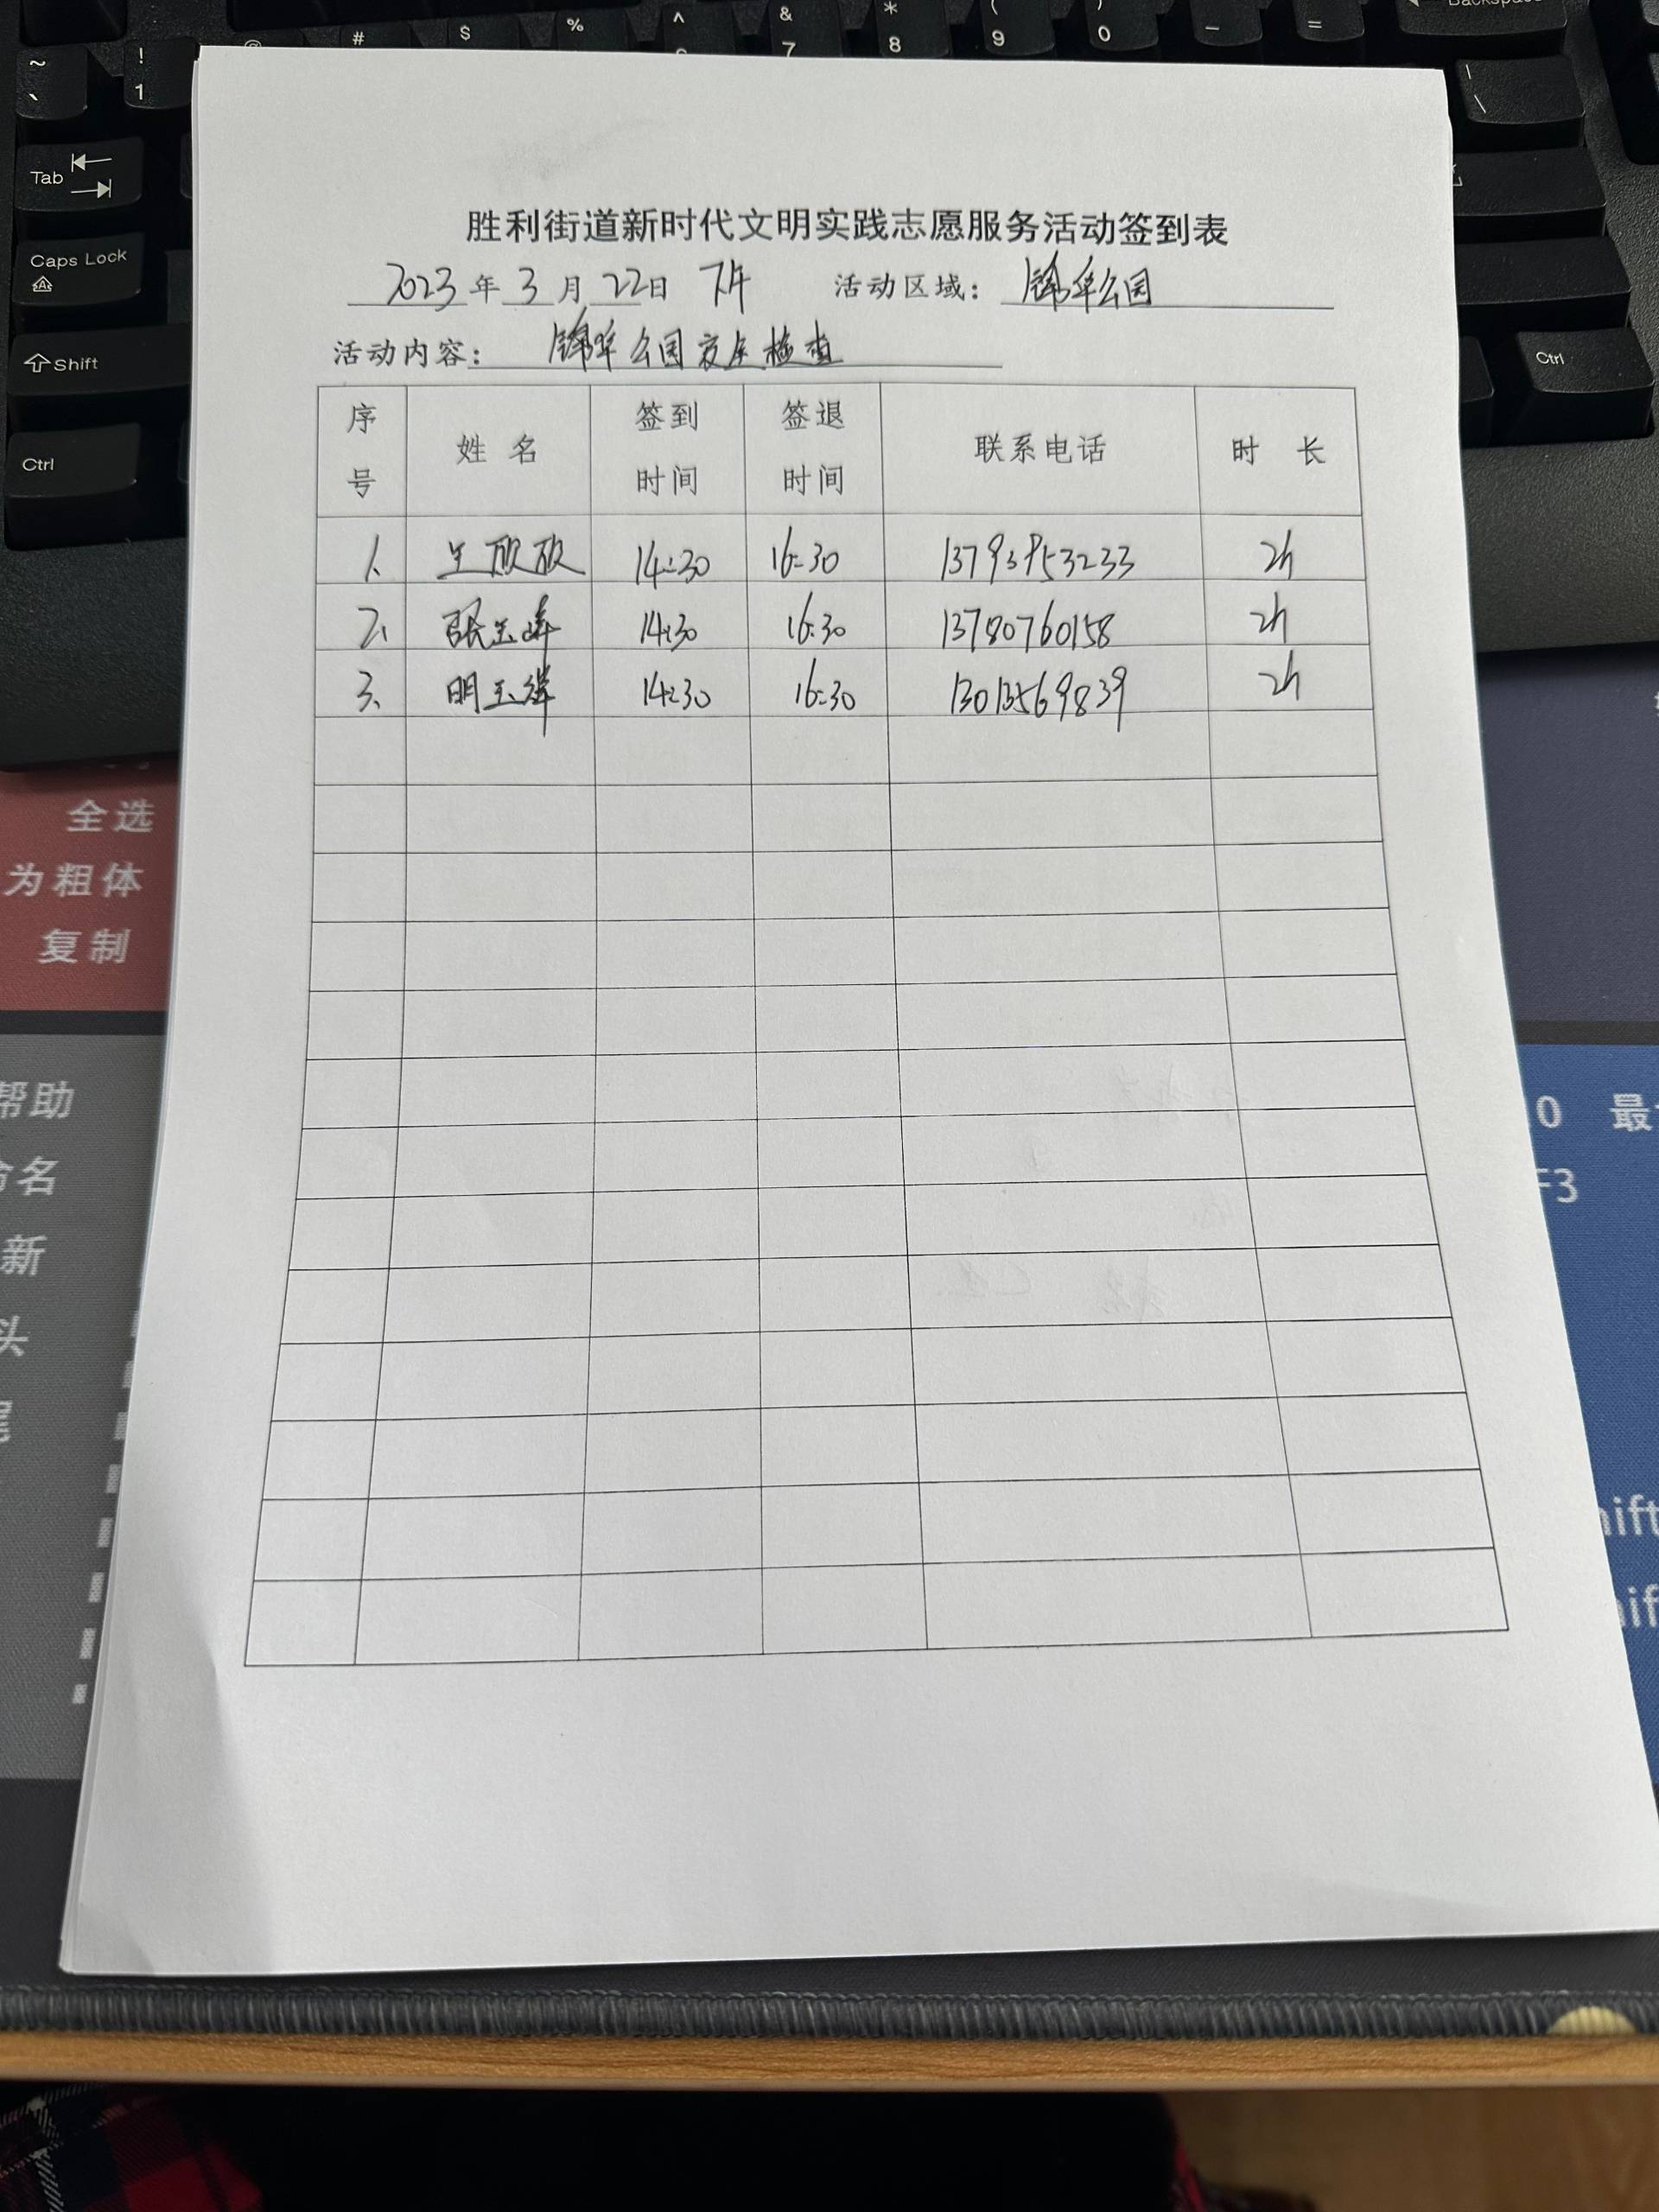 胜利街道新时代文明实践志愿服务活动签到表
2023年3月22日 下午 活动区域: 锦华公园
活动内容: 锦华公园安全检查
序号 姓名 签到时间 签退时间 联系电话 时长
1、 14:30 16:30 13793953233 2h
2、 张玉峰 14:30 16:30 13780760158 2h
3、 明玉祥 14:30 16:30 13013569839 2h
Tab
Caps Lock
Shift
Ctrl
Ctrl
Backspace
~ ` ! 1 @ # $ % ^ & 7 * 8 ( 9 ) 0 _ + = | \
全选
为粗体
复制
帮助
命名
新
头
尾
F3